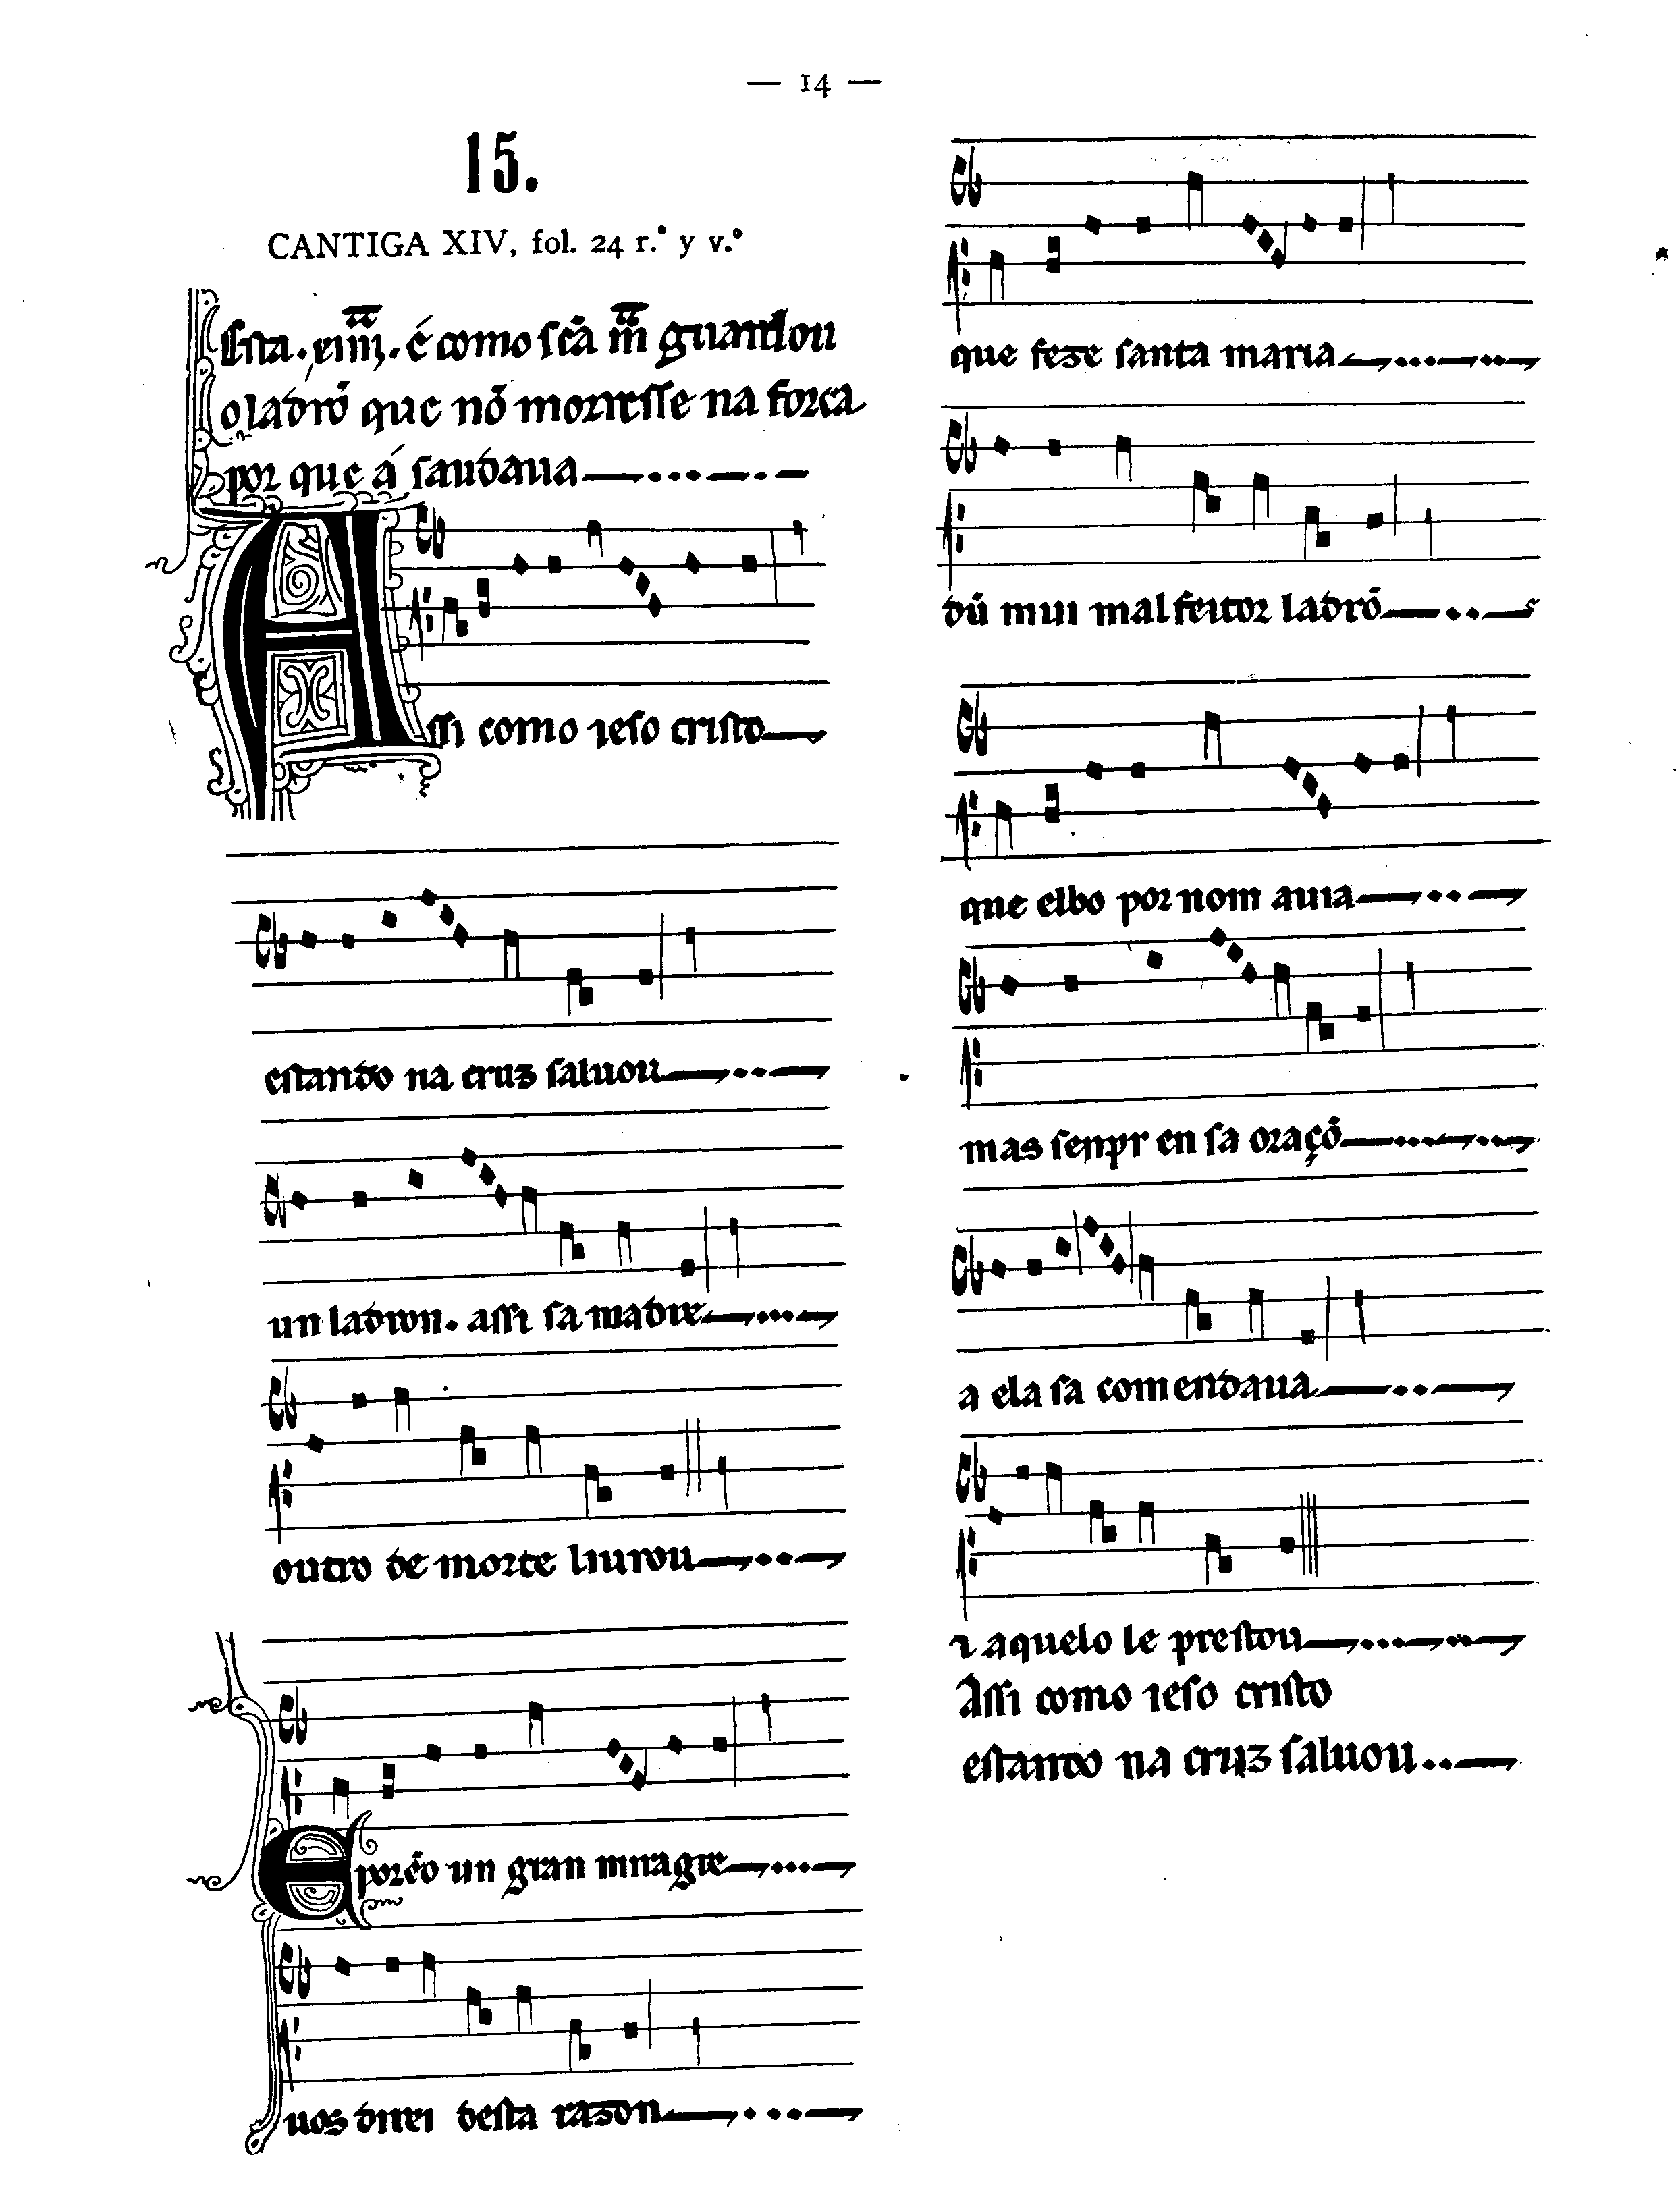 — 14 —
15.
CANTIGA XIV, fol. 24 r.º y v.º
Esta .xiiij. é como scā m̄ guardou
o ladrō que nō morresse na forca
por que á saudaua
Assi como ieso cristo
estando na cruz saluou
un ladron. assi sa madre
outro de morte liurou
E porēo un gran miragre
uos direi desta razon
que feze santa maria
dū mui malfeitor ladrō
que elbo por nom auia
mas senpr en sa oraçō
a ela sa comendaua
⁊ aquelo le prestou
Assi como ieso cristo
estando na cruz saluou..